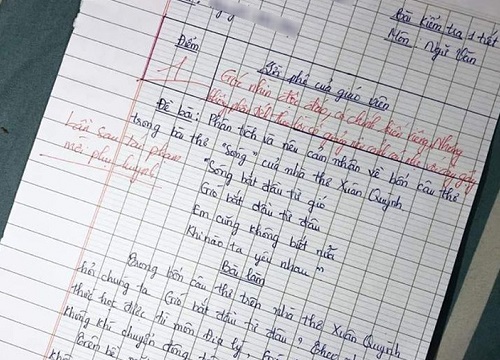 Bài kiểm tra 1 tiết
Môn Ngữ Văn
Điểm
Lời phê của giáo viên
1
Góc nhìn độc đáo, có chính kiến riêng. Nhưng
Lần sau tái phạm
mời phụ huynh
Đề bài: Phân tích và nêu cảm nhận về bốn câu thơ
trong bài thơ "Sóng" của nhà thơ Xuân Quỳnh
"Sóng bắt đầu từ gió
Gió bắt đầu từ đâu
Em cũng không biết nữa
Khi nào ta yêu nhau"
Bài làm
Trong bốn câu thơ trên nhà thơ Xuân Quỳnh
hỏi chúng ta Gió bắt đầu từ đâu? Theo
thức học được từ môn Địa lý,
không khí chuyển động